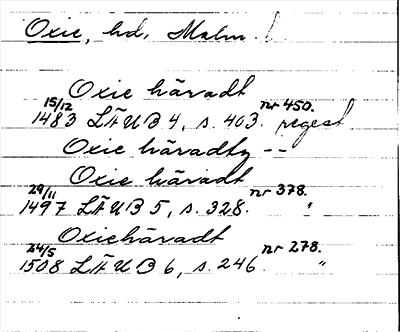 Oxie, hd, Malm. l.
Oxie häradt
15/12 1483 LÄUB 4, s. 403. nr 450. regest
Oxie häradtz --
Oxie häradt
29/11 1497 LÄUB 5, s. 328. nr 378. "
Oxiehäradt
24/5 1508 LÄUB 6, s. 246. nr 278. "